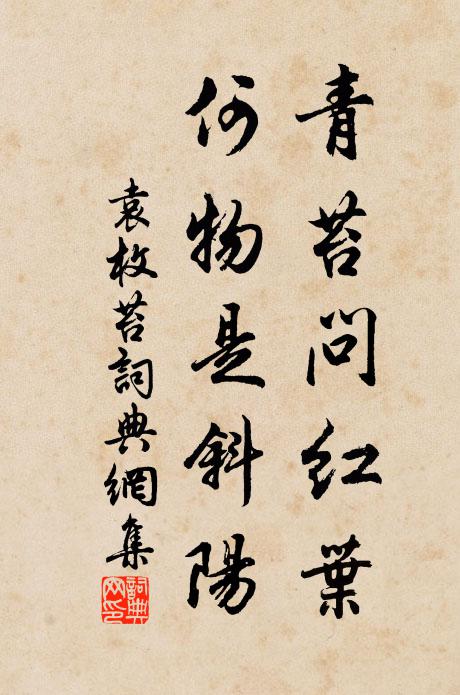 青苔問紅葉
何物是斜陽
袁枚苔詞典網集
詞典網印